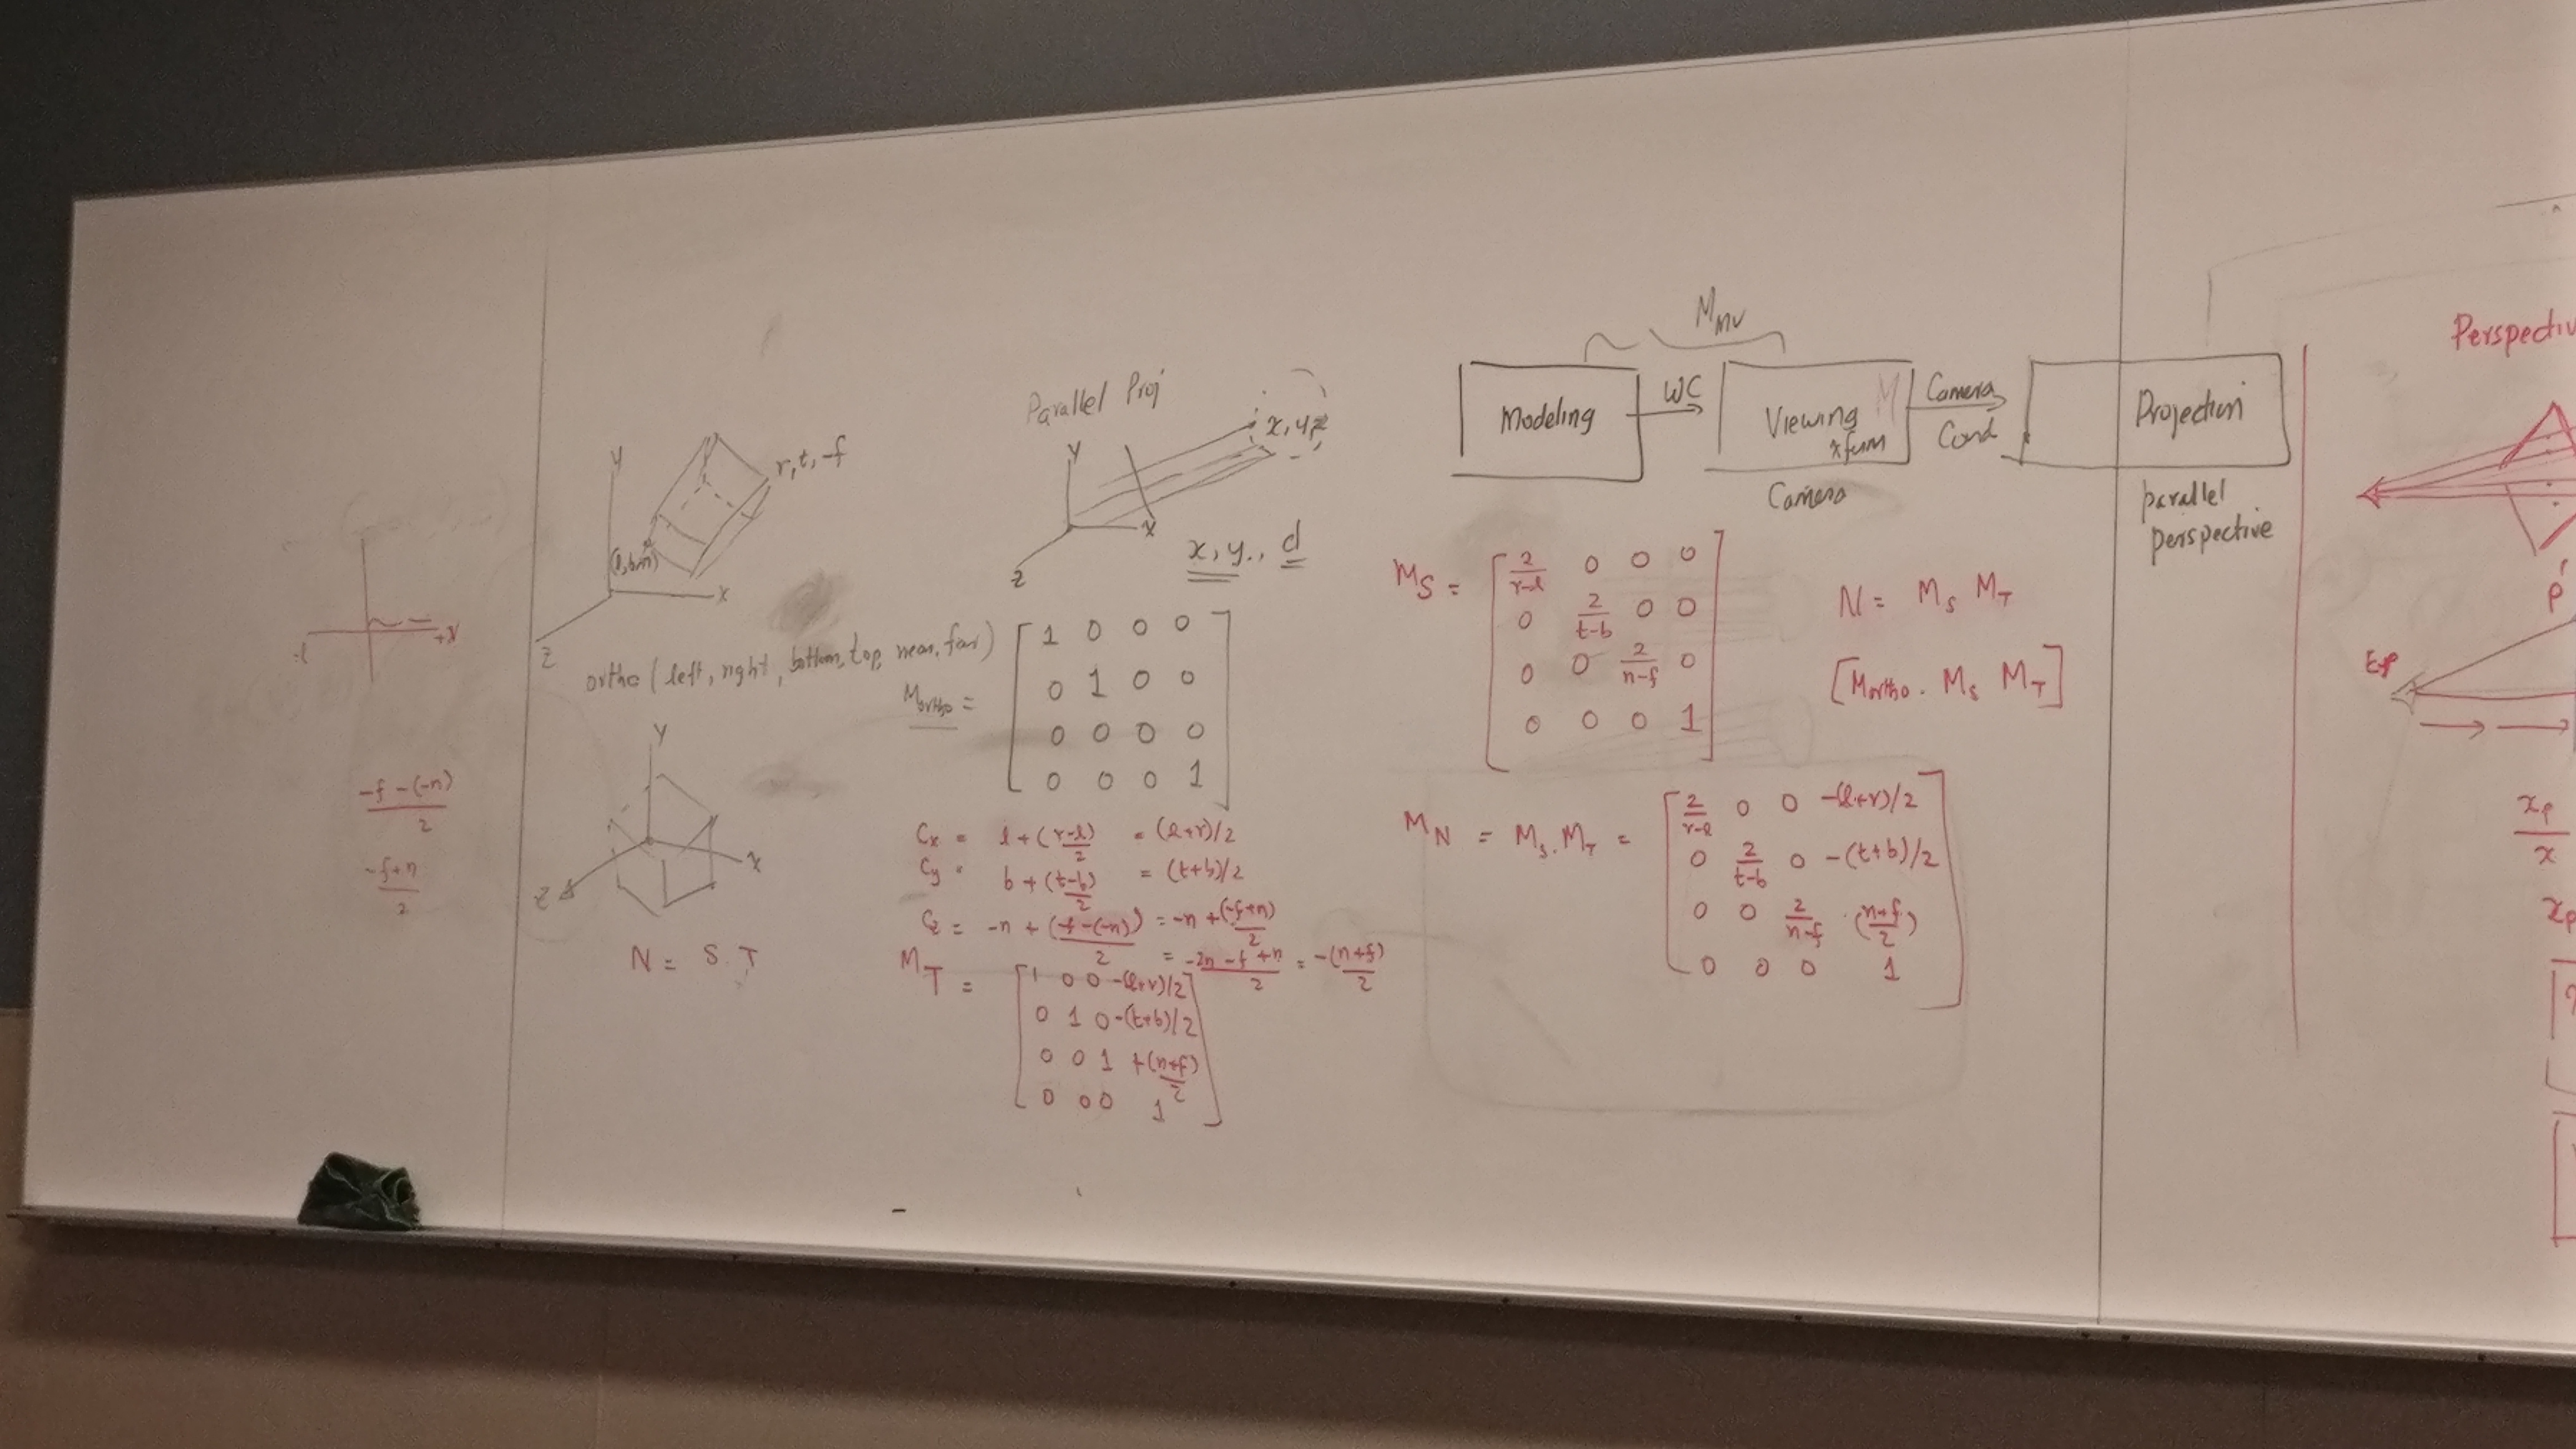 -l
+x
-f-(-n)
2
-f+n
2
y
r,t,-f
(l,b,n)
x
z
ortho (left, right, bottom, top, near, far)
y
x
z
N = S.T
Parallel Proj
y
x,y,z
x
z
x, y., d
Mortho =
1 0 0 0
0 1 0 0
0 0 0 0
0 0 0 1
Cx = l+(r-l)/2 = (l+r)/2
Cy = b+(t-b)/2 = (t+b)/2
Cz = -n+(-f-(-n))/2 = -n+(-f+n)/2
= -2n-f+n/2 = -(n+f)/2
MT =
1 0 0 -(l+r)/2
0 1 0 -(t+b)/2
0 0 1 +(n+f)/2
0 0 0 1
Mmv
Modeling
WC
Viewing
xfum
Camera
Cord
Projection
Camera
parallel
perspective
MS =
2/r-l 0 0 0
0 2/t-b 0 0
0 0 2/n-f 0
0 0 0 1
N = MS MT
[Mortho. MS MT]
MN = MS.MT =
2/r-l 0 0 -(l+r)/2
0 2/t-b 0 -(t+b)/2
0 0 2/n-f (n+f/2)
0 0 0 1
Perspectiv
p'
xp
x
xp